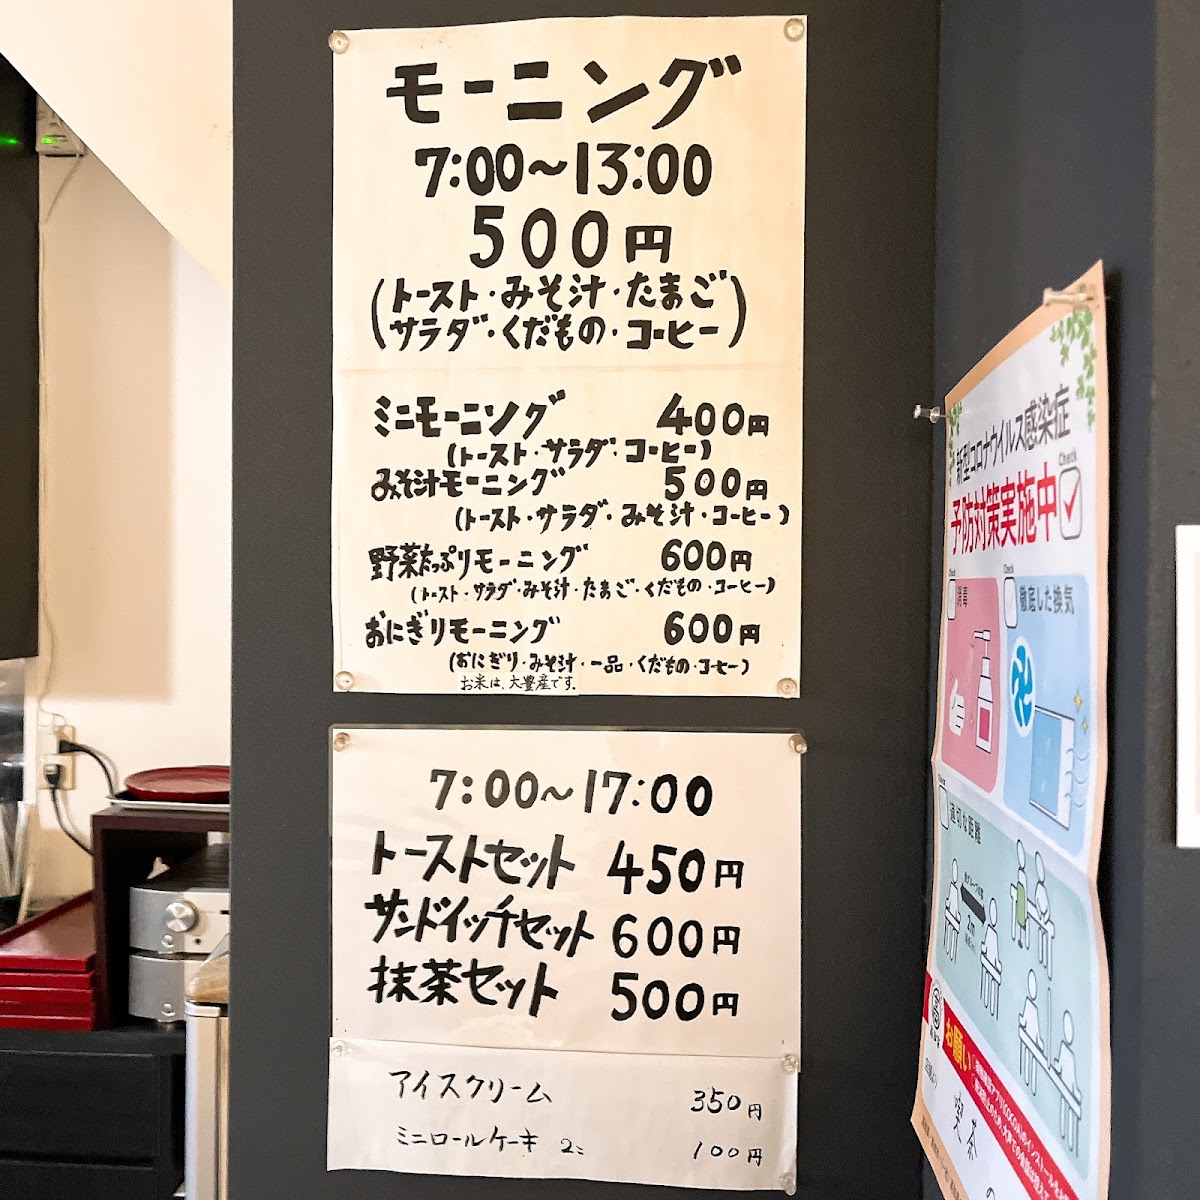 モーニング
7:00〜13:00
500円
(トースト・みそ汁・たまご
サラダ・くだもの・コーヒー)
ミニモーニング 400円
(トースト・サラダ・コーヒー)
みそ汁モーニング 500円
(トースト・サラダ・みそ汁・コーヒー)
野菜たっぷりモーニング 600円
(トースト・サラダ・みそ汁・たまご・くだもの・コーヒー)
おにぎりモーニング 600円
(おにぎり・みそ汁・一品・くだもの・コーヒー)
お米は、大豊産です。
7:00〜17:00
トーストセット 450円
サンドイッチセット 600円
抹茶セット 500円
アイスクリーム 350円
ミニロールケーキ 2コ 100円
新型コロナウイルス感染症
予防対策実施中
Check
Check
消毒
Check
徹底した換気
Check
適切な距離
2m
お願い
喫茶
の